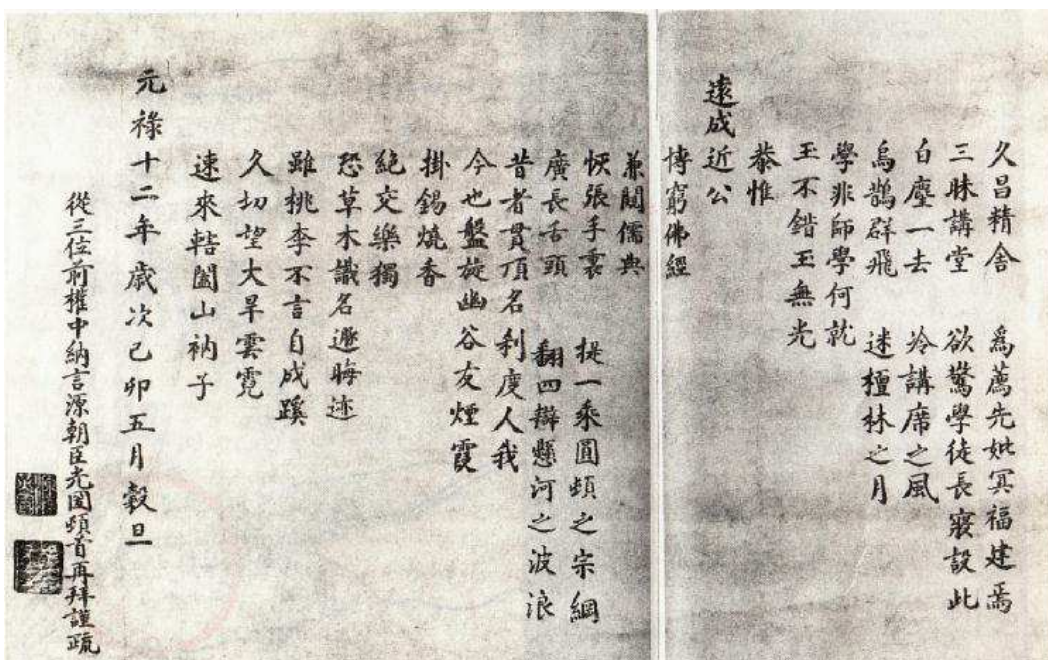 久昌精舍 為薦先妣冥福建焉
三昧講堂 欲驚學徒長寢設此
白麈一去 冷講席之風
烏鵲群飛 迷檀林之月
學非師學何就
玉不錯玉無光
恭惟
遠成近公
博窮佛經
兼閱儒典
恢張手裏 提一乘圓頓之宗綱
廣長舌頭 翻四辯懸河之波浪
昔者貫頂名利度人我
今也盤旋幽谷友煙霞
掛錫燒香
絕交樂獨
恐草木識名遯晦迹
雖桃李不言自成蹊
久切望大旱雲霓
速來轄闔山衲子
元祿十二年歲次己卯五月穀旦
從三位前權中納言源朝臣光圀頓首再拜謹疏